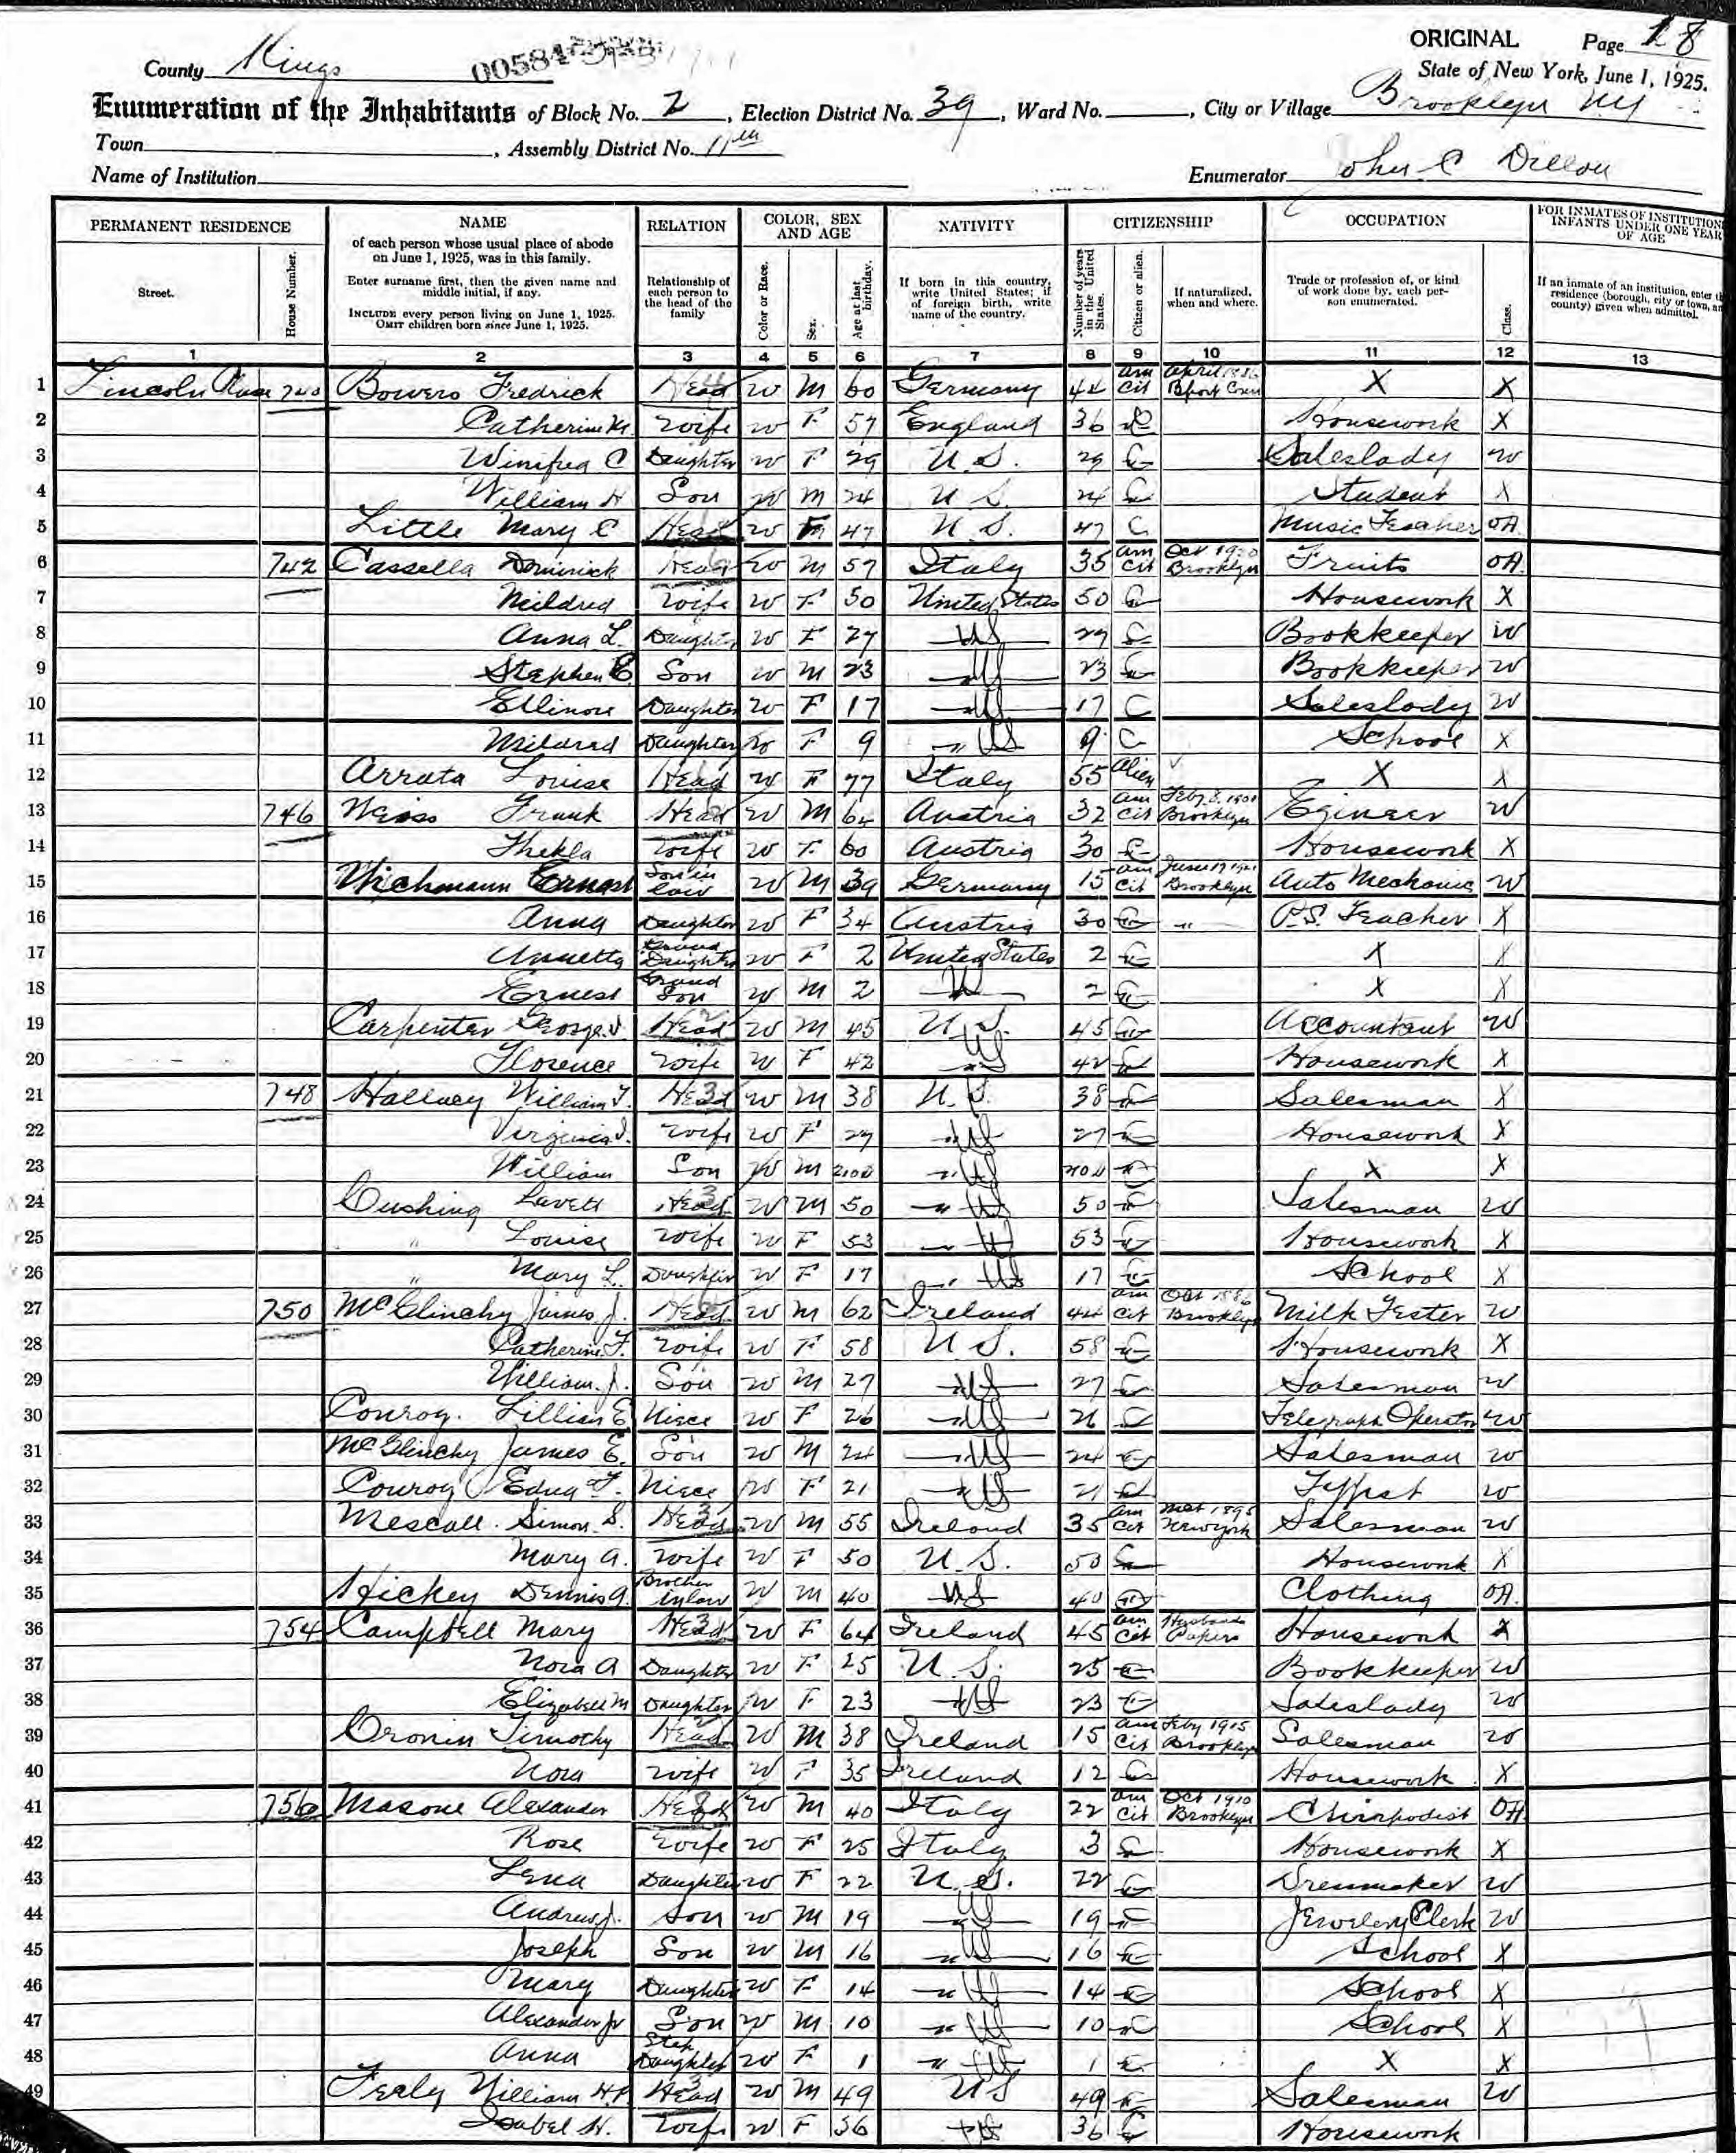 ORIGINAL Page 18
County Kings
State of New York, June 1, 1925.
Enumeration of the Inhabitants of Block No. 2, Election District No. 39, Ward No. , City or Village Brooklyn NY
Town , Assembly District No. 11th
Name of Institution Enumerator John C Dillon
PERMANENT RESIDENCE NAME RELATION COLOR, SEX AND AGE NATIVITY CITIZENSHIP OCCUPATION FOR INMATES OF INSTITUTION INFANTS UNDER ONE YEAR OF AGE
Street. House Number. of each person whose usual place of abode on June 1, 1925, was in this family.
Enter surname first, then the given name and middle initial, if any.
INCLUDE every person living on June 1, 1925. OMIT children born since June 1, 1925.
Relationship of each person to the head of the family
Color or Race. Sex. Age at last birthday.
If born in this country, write United States; if of foreign birth, write name of the country.
Number of years in the United States. Citizen or alien. If naturalized, when and where.
Trade or profession of, or kind of work done by, each person enumerated. Class.
If an inmate of an institution, enter residence (borough, city or town, an county) given when admitted.
1 2 3 4 5 6 7 8 9 10 11 12 13
1 Lincoln 740 Bowers Fredrick Head W M 60 Germany 44 am cit April Bport Conn X X
2 Catherine M. Wife W F 57 England 36 C Housework X
3 Winifred C Daughter W F 29 U.S. 29 C Saleslady W
4 William H Son W M 24 U S. 24 C Student X
5 Little Mary C Head W F 47 U.S. 47 C Music Teacher OA
6 742 Cassella Dominick Head W M 57 Italy 35 am cit Oct 1920 Brooklyn Fruits OA.
7 Mildred Wife W F 50 United States 50 C Housework X
8 Anna L. Daughter W F 27 " US 27 C Bookkeeper W
9 Stephen C Son W M 23 " US 23 C Bookkeeper W
10 Ellinore Daughter W F 17 " US 17 C Saleslady W
11 Mildred Daughter W F 9 " US 9 C School X
12 Arrata Louise Head W F 77 Italy 55 Alien X X
13 746 Weiss Frank Head W M 64 Austria 32 am cit Feby 8, 1901 Brooklyn Egineer W
14 Thekla Wife W F 60 Austria 30 C Housework X
15 Wichmann Ernest Son in law W M 39 Germany 15 am cit June 17 Brooklyn Auto Mechanic W
16 Anna Daughter W F 34 Austria 30 C " P.S. Teacher X
17 Annetta Grand Daughter W F 2 United States 2 C X X
18 Ernest Grand Son W M 2 " US 2 C X X
19 Carpenter George J. Head W M 45 U.S. 45 C Accountant W
20 Florence Wife W F 42 " US 42 C Housework X
21 748 William F. Head W M 38 U.S. 38 C Salesman X
22 Virginia J. Wife W F 27 " US 27 C Housework X
23 William Son W M " US C X X
24 Cushing Lavett Head W M 50 " US 50 C Salesman W
25 " Louise Wife W F 53 " US 53 C Housework X
26 " Mary L. Daughter W F 17 " US 17 C School X
27 750 McGlinchy James J. Head W M 62 Ireland 44 am cit Oct 1886 Brooklyn Milk Tester W
28 Catherine F. Wife W F 58 U S. 58 C Housework X
29 William J. Son W M 27 " US 27 C Salesman W
30 Conroy. Lillian E Niece W F 26 " US 26 C Telegraph Operator W
31 McGlinchy James E. Son W M 24 " US 24 C Salesman W
32 Conroy Edna F. Niece W F 21 " US 21 C Typist W
33 Mescall. Simon S. Head W M 55 Ireland 35 am cit 1895 New York Salesman W
34 Mary A. Wife W F 50 U.S. 50 C Housework X
35 Hickey Dennis A. Brother in law W M 40 " US 40 C Clothing OA.
36 754 Campbell Mary Head W F 64 Ireland 45 am cit Husband Papers Housework X
37 Nora A Daughter W F 25 U.S. 25 C Bookkeeper W
38 Elizabeth M Daughter W F 23 " US 23 C Saleslady W
39 Cronin Timothy Head W M 38 Ireland 15 am cit Feby 1915 Brooklyn Salesman W
40 Nora Wife W F 35 Ireland 12 C Housework X
41 756 Masone Alexander Head W M 40 Italy 22 am cit Oct 1910 Brooklyn Chiropodist OA
42 Rose Wife W F 25 Italy 3 C Housework X
43 Lena Daughter W F 22 U.S. 22 C Dressmaker W
44 Andrew J. Son W M 19 " US 19 C Jewelery Clerk W
45 Joseph Son W M 16 " US 16 C School X
46 Mary Daughter W F 14 " US 14 C School X
47 Alexander Jr Son W M 10 " US 10 C School X
48 Anna Step Daughter W F 1 " US 1 C X X
49 William H.P. Head W M 49 US 49 C Salesman W
Isabel H. Wife W F 36 " US 36 C Housework